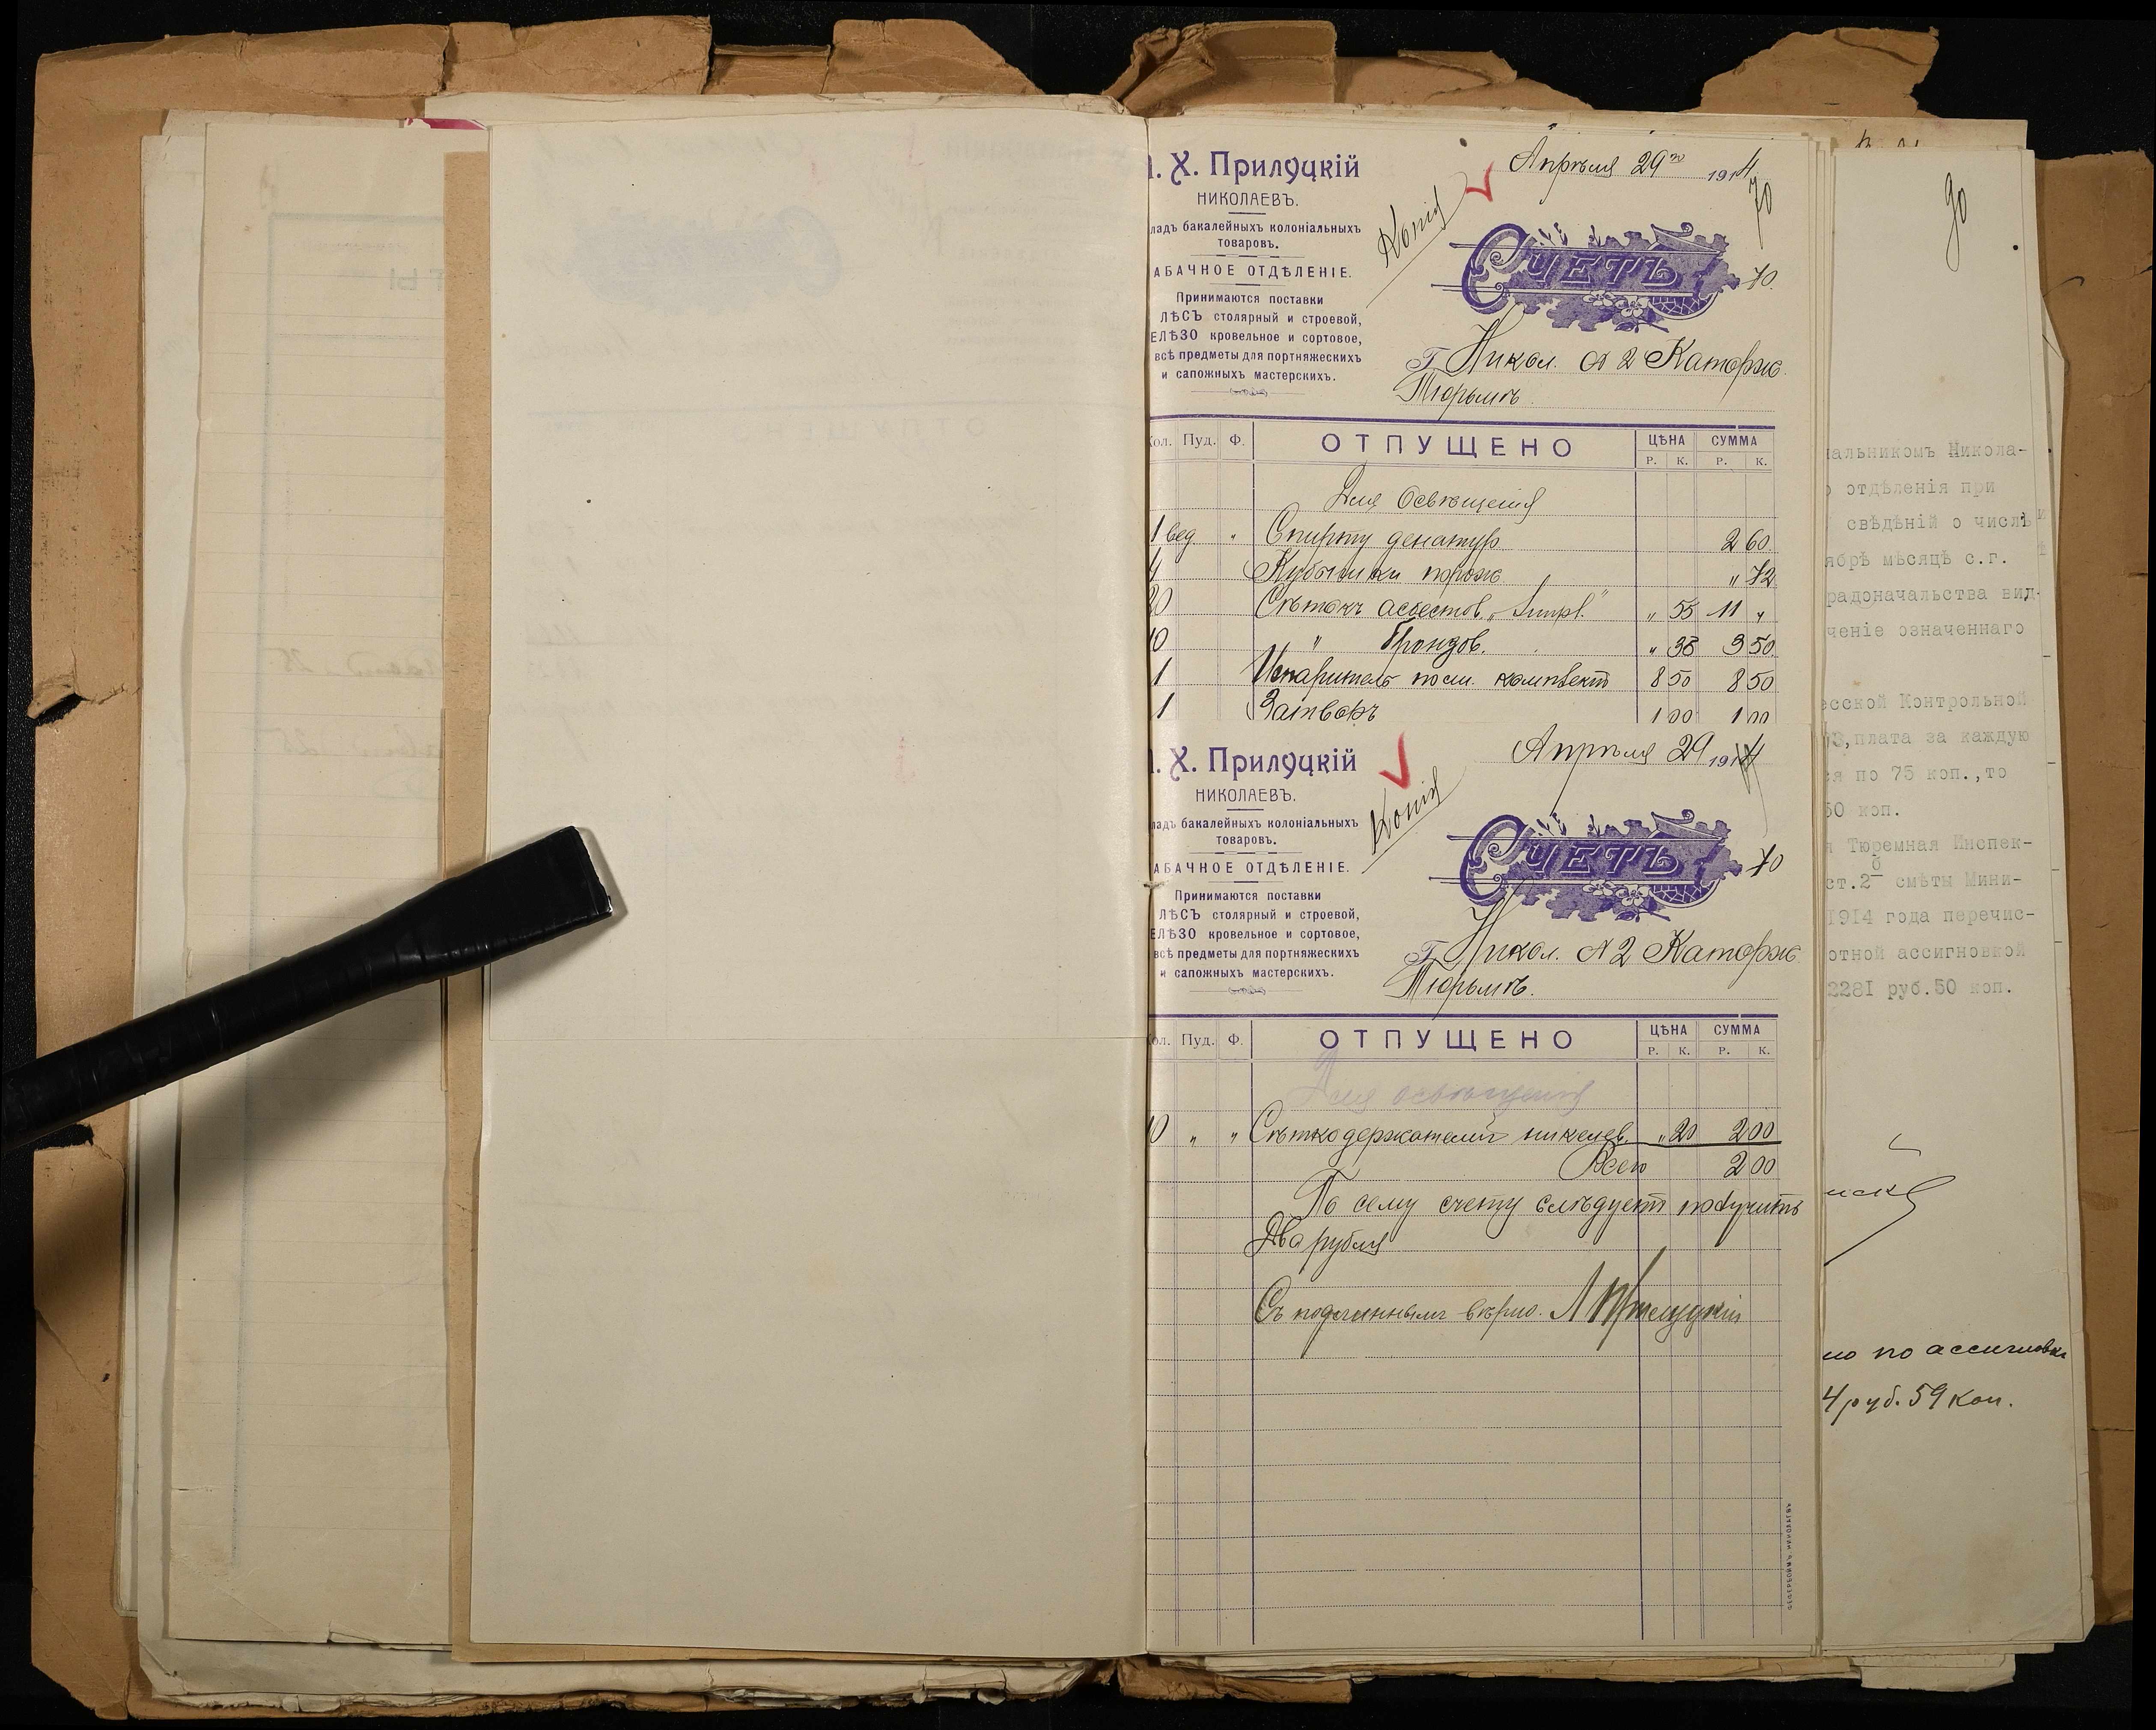 . Х. Прилуцкій
НИКОЛАЕВЪ.
ладъ бакалейныхъ колоніальныхъ
товаровъ.
АБАЧНОЕ ОТДѢЛЕНІЕ.
Принимаются поставки
ЛѢСЪ столярный и строевой,
ЕЛѢЗО кровельное и сортовое,
всѣ предметы для портняжескихъ
и сапожныхъ мастерскихъ.
Копія
Апрѣля 29го 1914
70
СЧЕТЪ
70.
Г. Никол. № 2 Каторж.
Тюрьмѣ.
Кол. Пуд. Ф. ОТПУЩЕНО ЦѢНА СУММА
Р. К. Р. К.
Для Освѣщенія
1 вед. " Спирту денатур 2 60
4 Кубышки порож " 72
20 Сѣтокъ асбестов. " 55 11 "
10 " " 35 3 50
1 Испаритель полн. комплектъ 8 50 8 50
1 Затворъ 1 00 1 00
. Х. Прилуцкій
НИКОЛАЕВЪ.
ладъ бакалейныхъ колоніальныхъ
товаровъ.
АБАЧНОЕ ОТДѢЛЕНІЕ.
Принимаются поставки
ЛѢСЪ столярный и строевой,
ЕЛѢЗО кровельное и сортовое,
всѣ предметы для портняжескихъ
и сапожныхъ мастерскихъ.
Копія
Апрѣля 29 1914
СЧЕТЪ
70
Г. Никол. № 2 Каторж.
Тюрьмѣ.
ол. Пуд. Ф. ОТПУЩЕНО ЦѢНА СУММА
Р. К. Р. К.
Для освѣщенія
10 " " Сѣткодержателей никелев. " 20 2 00
Всего 2 00
По сему счету слѣдуетъ получить
Два рубля
Съ подлиннымъ вѣрно. Л Прилуцкій
90
альникомъ Никола-
о отдѣленія при
свѣдѣній о числѣ
ябрѣ мѣсяцѣ с.г.
радоначальства вид-
ченіе означеннаго
есской Контрольной
плата за каждую
ся по 75 коп.,то
50 коп.
я Тюремная Инспек-
ст.2й смѣты Мини-
1914 года перечис-
отной ассигновкой
2281 руб.50 коп.
но по ассигновкѣ
4 руб. 59 коп.